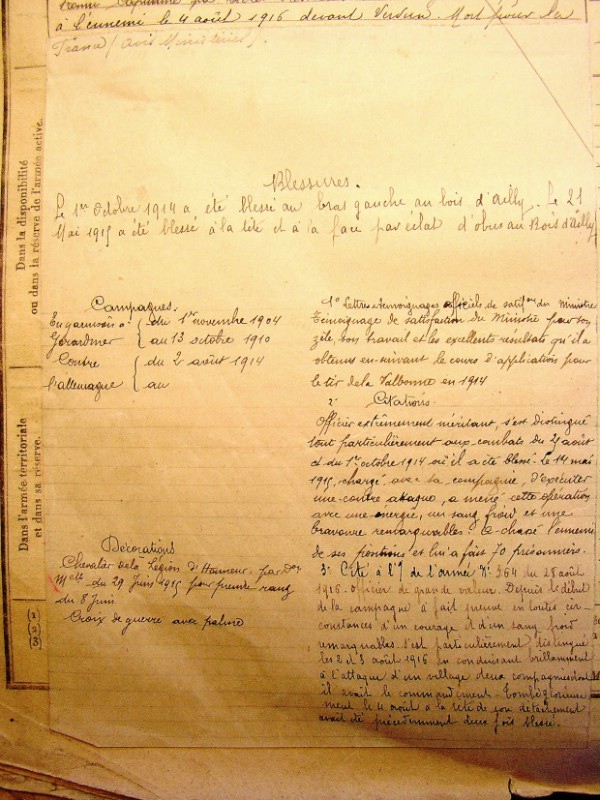 à l'ennemi le 4 août 1916 devant Verdun. Mort pour la
France (avis Ministériel).
Dans la disponibilité
ou dans la réserve de l'armée active.
Blessures.
Le 1er Octobre 1914 a été blessé au bras gauche au bois d'Ailly. Le 21
Mai 1915 a été blessé à la tête et à la face par éclat d'obus au Bois d'Ailly
Campagnes.
En garnison à du 1er novembre 1904
Gérardmer au 13 octobre 1910
Contre du 2 août 1914
l'allemagne au
Dans l'armée territoriale
et dans sa réserve.
Décorations
Chevalier de la Légion d'Honneur par
Melle du 29 Juin 1915 pour prendre rang
du 8 Juin
Croix de guerre avec palme
(1)
(2)
(3)
1° Lettres témoignages officiels de satison du Ministre
Témoignage de satisfaction du Ministre pour son
zèle, son travail et les excellents résultats qu'il a
obtenus en suivant le cours d'application pour
le tir de la Valbonne en 1914
2° Citations.
Officier extrêmement méritant, s'est distingué
tout particulièrement aux combats du août
et du 1er octobre 1914 où il a été blessé. le 14 mai
1915, chargé avec sa compagnie, d'exécuter
une contre attaque, a mené cette opération
avec une énergie, un sang froid et une
bravoure remarquables. A chassé l'ennemi
de ses positions et lui a fait 70 prisonniers.
3° Cité à l'O de l'armée N° 364 du 28 août
1916. Officier de grande valeur. Depuis le début
de la campagne a fait preuve en toutes cir-
constances d'un courage et d'un sang froid
remarquables. s'est particulièrement distingué
les 2 et 3 août 1916 en conduisant brillamment
à l'attaque d'un village deux compagnies dont
il avait le commandement. Tombé glorieuse
ment le 4 août à la tête de son détachement
avait été précédemment deux fois blessé.